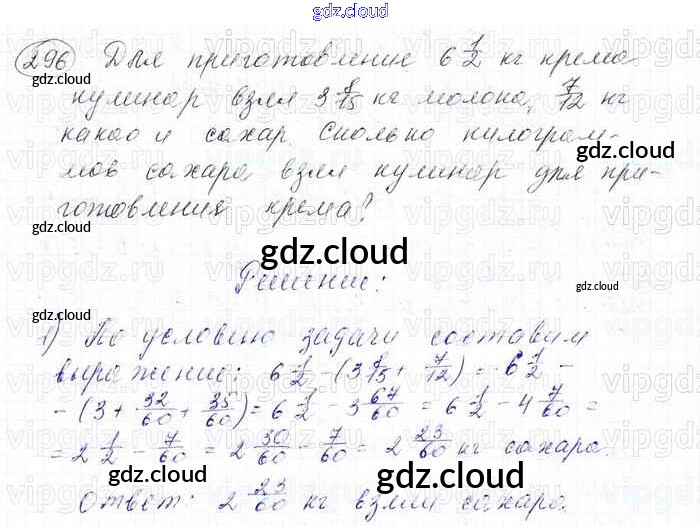 gdz.cloud
296 Для приготовление 6 1/2 кг крема
gdz.cloud
кулинар взял 3 8/15 кг молока, 7/12 кг
какао и сахар. Сколько килограм-
gdz.cloud
мов сахара взял кулинар для при-
готовления крема?
gdz.cloud
gdz.cloud
Решение:
gdz.cloud
1) По условию задачи составим
выражение: 6 1/2 - (3 8/15 + 7/12) = 6 1/2 -
- (3 + 32/60 + 35/60) = 6 1/2 - 3 67/60 = 6 1/2 - 4 7/60 =
gdz.cloud
= 2 1/2 - 7/60 = 2 30/60 - 7/60 = 2 23/60 кг сахара.
gdz.cloud
Ответ: 2 23/60 кг взяли сахара.
gdz.cloud
gdz.cloud